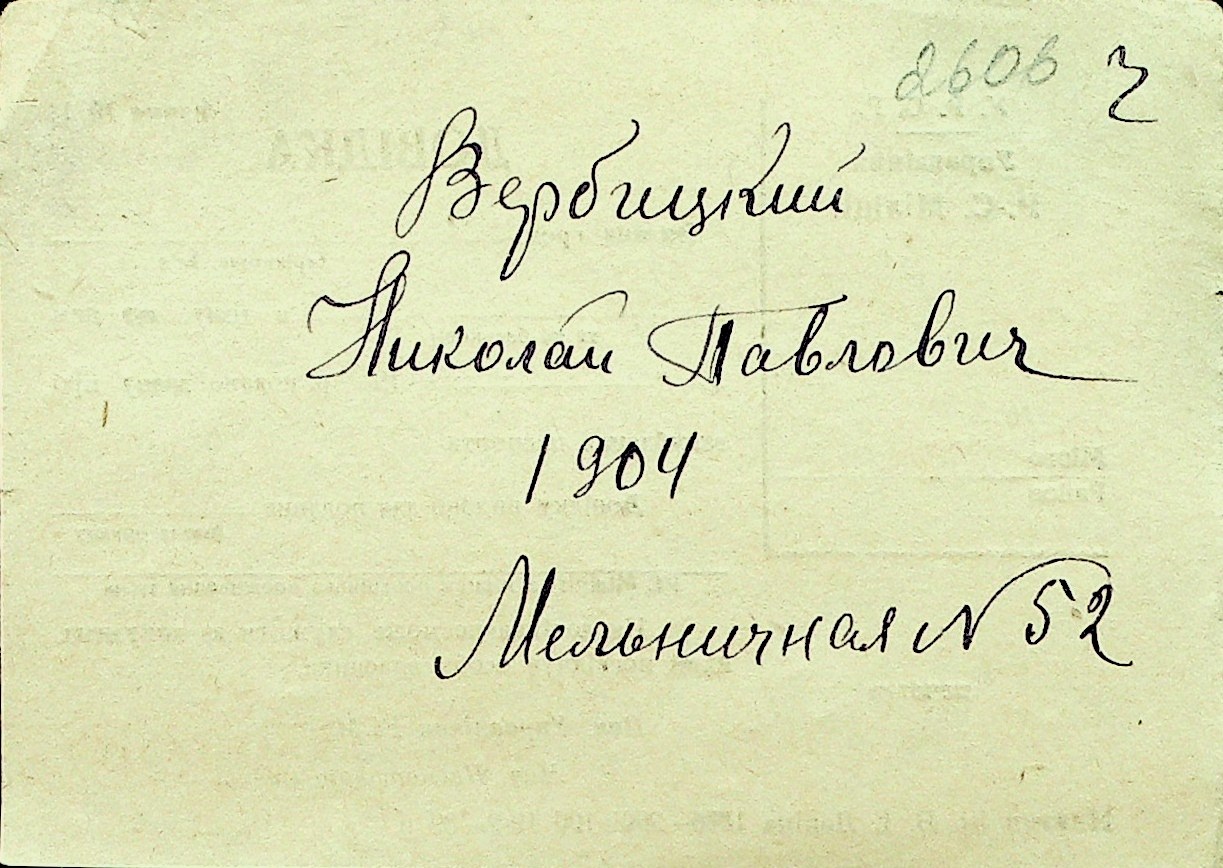 2606 ч
Вербицкий
Николай Павлович
1904
Мельничная № 52